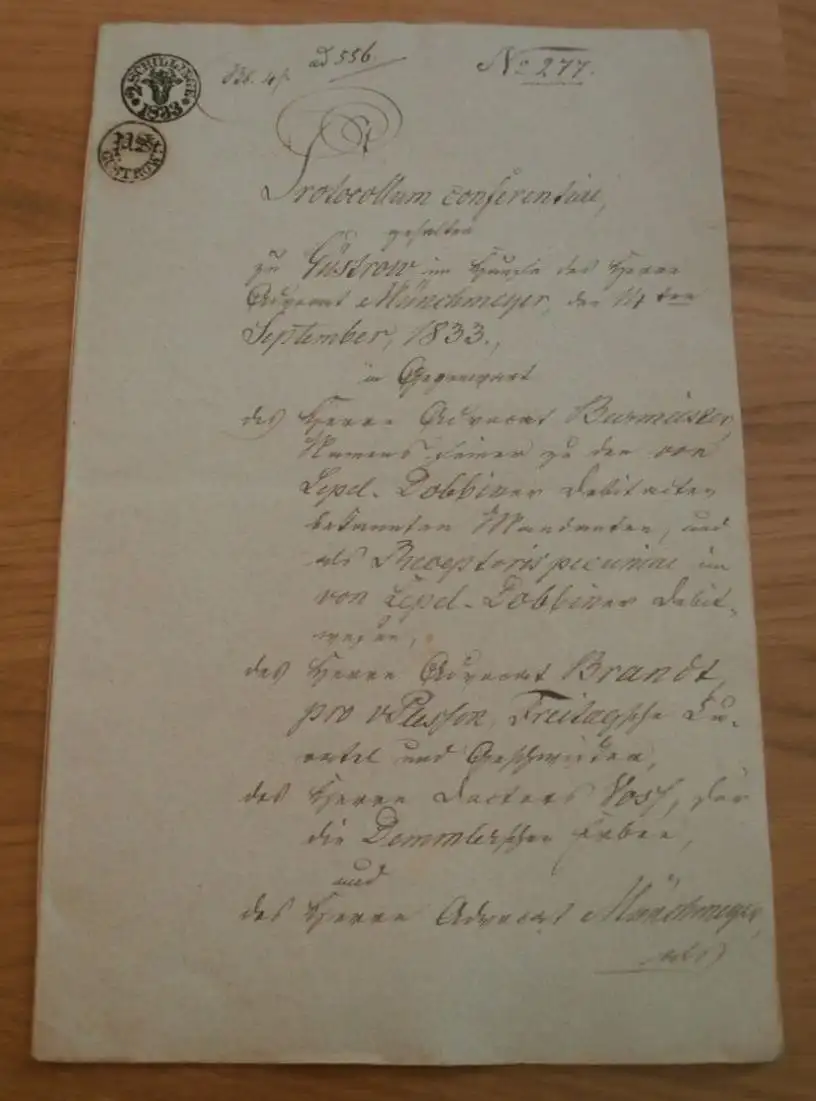 2 SCHILLINGE
1833
GÜSTROW
ad 556.
No 277.
Protocollum conferentiae,
gehalten
zu Güstrow im Hause des Herrn
Advocat Münchmeyer, den 14ten
September, 1833.,
in Gegenwart
des Herrn Advocat Burmeister,
Namens seiner zu den von
Lepel-Dobbiner Debitacten
bekannten Mandanten, und
als Receptoris pecuniae im
von Lepel-Dobbiner Debit-
wesen,
des Herrn Advocat Brandt,
pro v Plessen, Freitagsche Cu-
ratel und Geschwister,
des Herrn Doctors Voss, für
die Demmlerschen Erben,
und
des Herrn Advocat Münchmeyer,